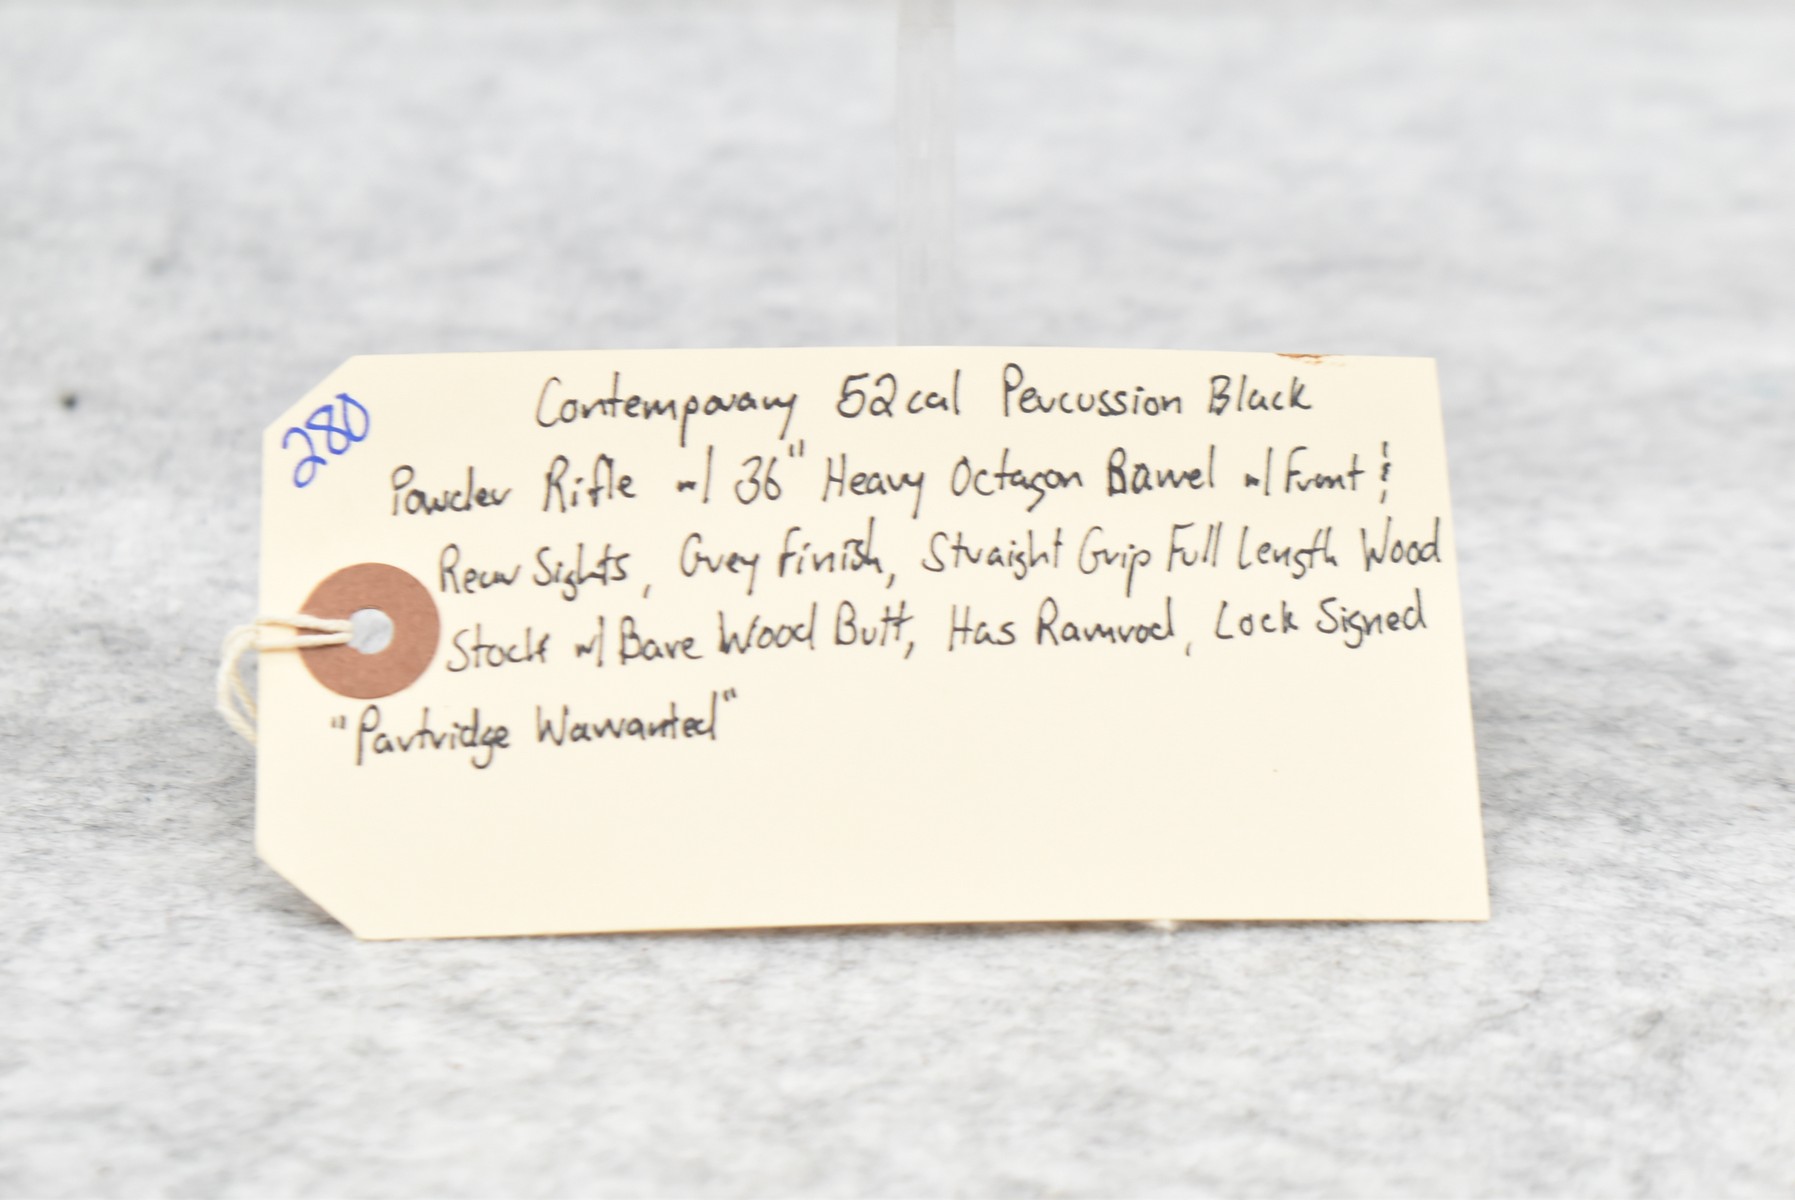 280
Contemporary 52cal Percussion Black
Powder Rifle w/ 36" Heavy Octagon Barrel w/ Front &
Rear Sights, Grey Finish, Straight Grip Full Length Wood
Stock w/ Bare Wood Butt, Has Ramrod, Lock Signed
"Partridge Warranted"